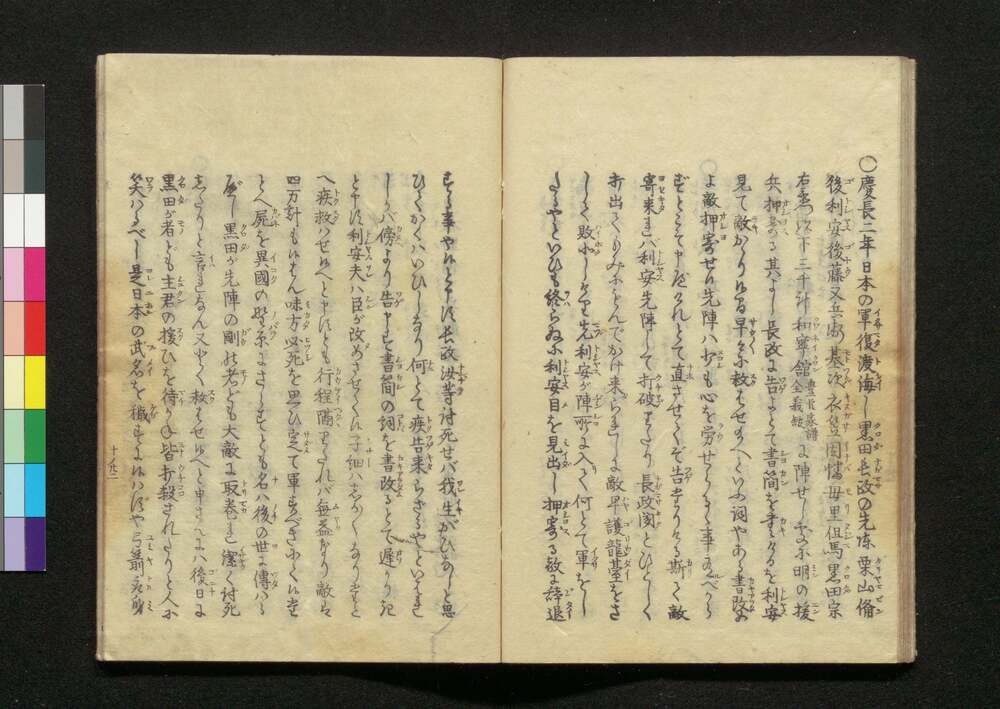 〇慶長二年日本の軍復渡海し黒田長政の先陣栗山備
後利安後藤又兵衛基次衣笠因幡毋里但馬黒田宗
右衛門以下三千計和寧舘に陣せし所に明の援
兵押来る其よし長政に告よとて書簡を書けるを利安
見て敵かゝり候間早々御救はせ給へといふ詞やある書改め
よ敵押寄せり先陣ハ少も心を労せらるゝ事なかるへ
しとこそ申べけれとて直させてぞ告まゐりける斯く敵
寄来れバ利安先陣して打破またり長政聞とひとしく
打出くもみにもんでかけ来られしに敵早護龍臺をさ
して敗北しけり先利安が陣所に入て何とて軍をし
たるやといひも終らぬに利安目を見出し押寄る敵に辞退
する事や候と申す長政汝等討死せバ我生がひなしと思
ひてかくハいひしなり何とて疾告来らざるやといはれ
しかバ傍より告申す書簡の詞を書改るとて遅りぬ
と申す利安夫ハ臣が改めさせて候子細ハおそくなり候まと
へ疾救ハせ給へと申すとも行程隔りたれバ無益なり敵は
四万計も候はん味方必死を思ひ定めて軍すべきにて候たと
とへ屍を異國の野原にさらすとも名ハ後の世に傳ハる
べし黒田が先陣の剛の者ども大敵に取巻れ潔く討死
したりと言れなん又早く救はせ給へと申さんにハ後日に
黒田が者とも主君の援ひを待かね皆打殺されたりと人に
笑ハるべし是日本の武名を穢すにハ候はずや弓箭の冥
十ノ廿二